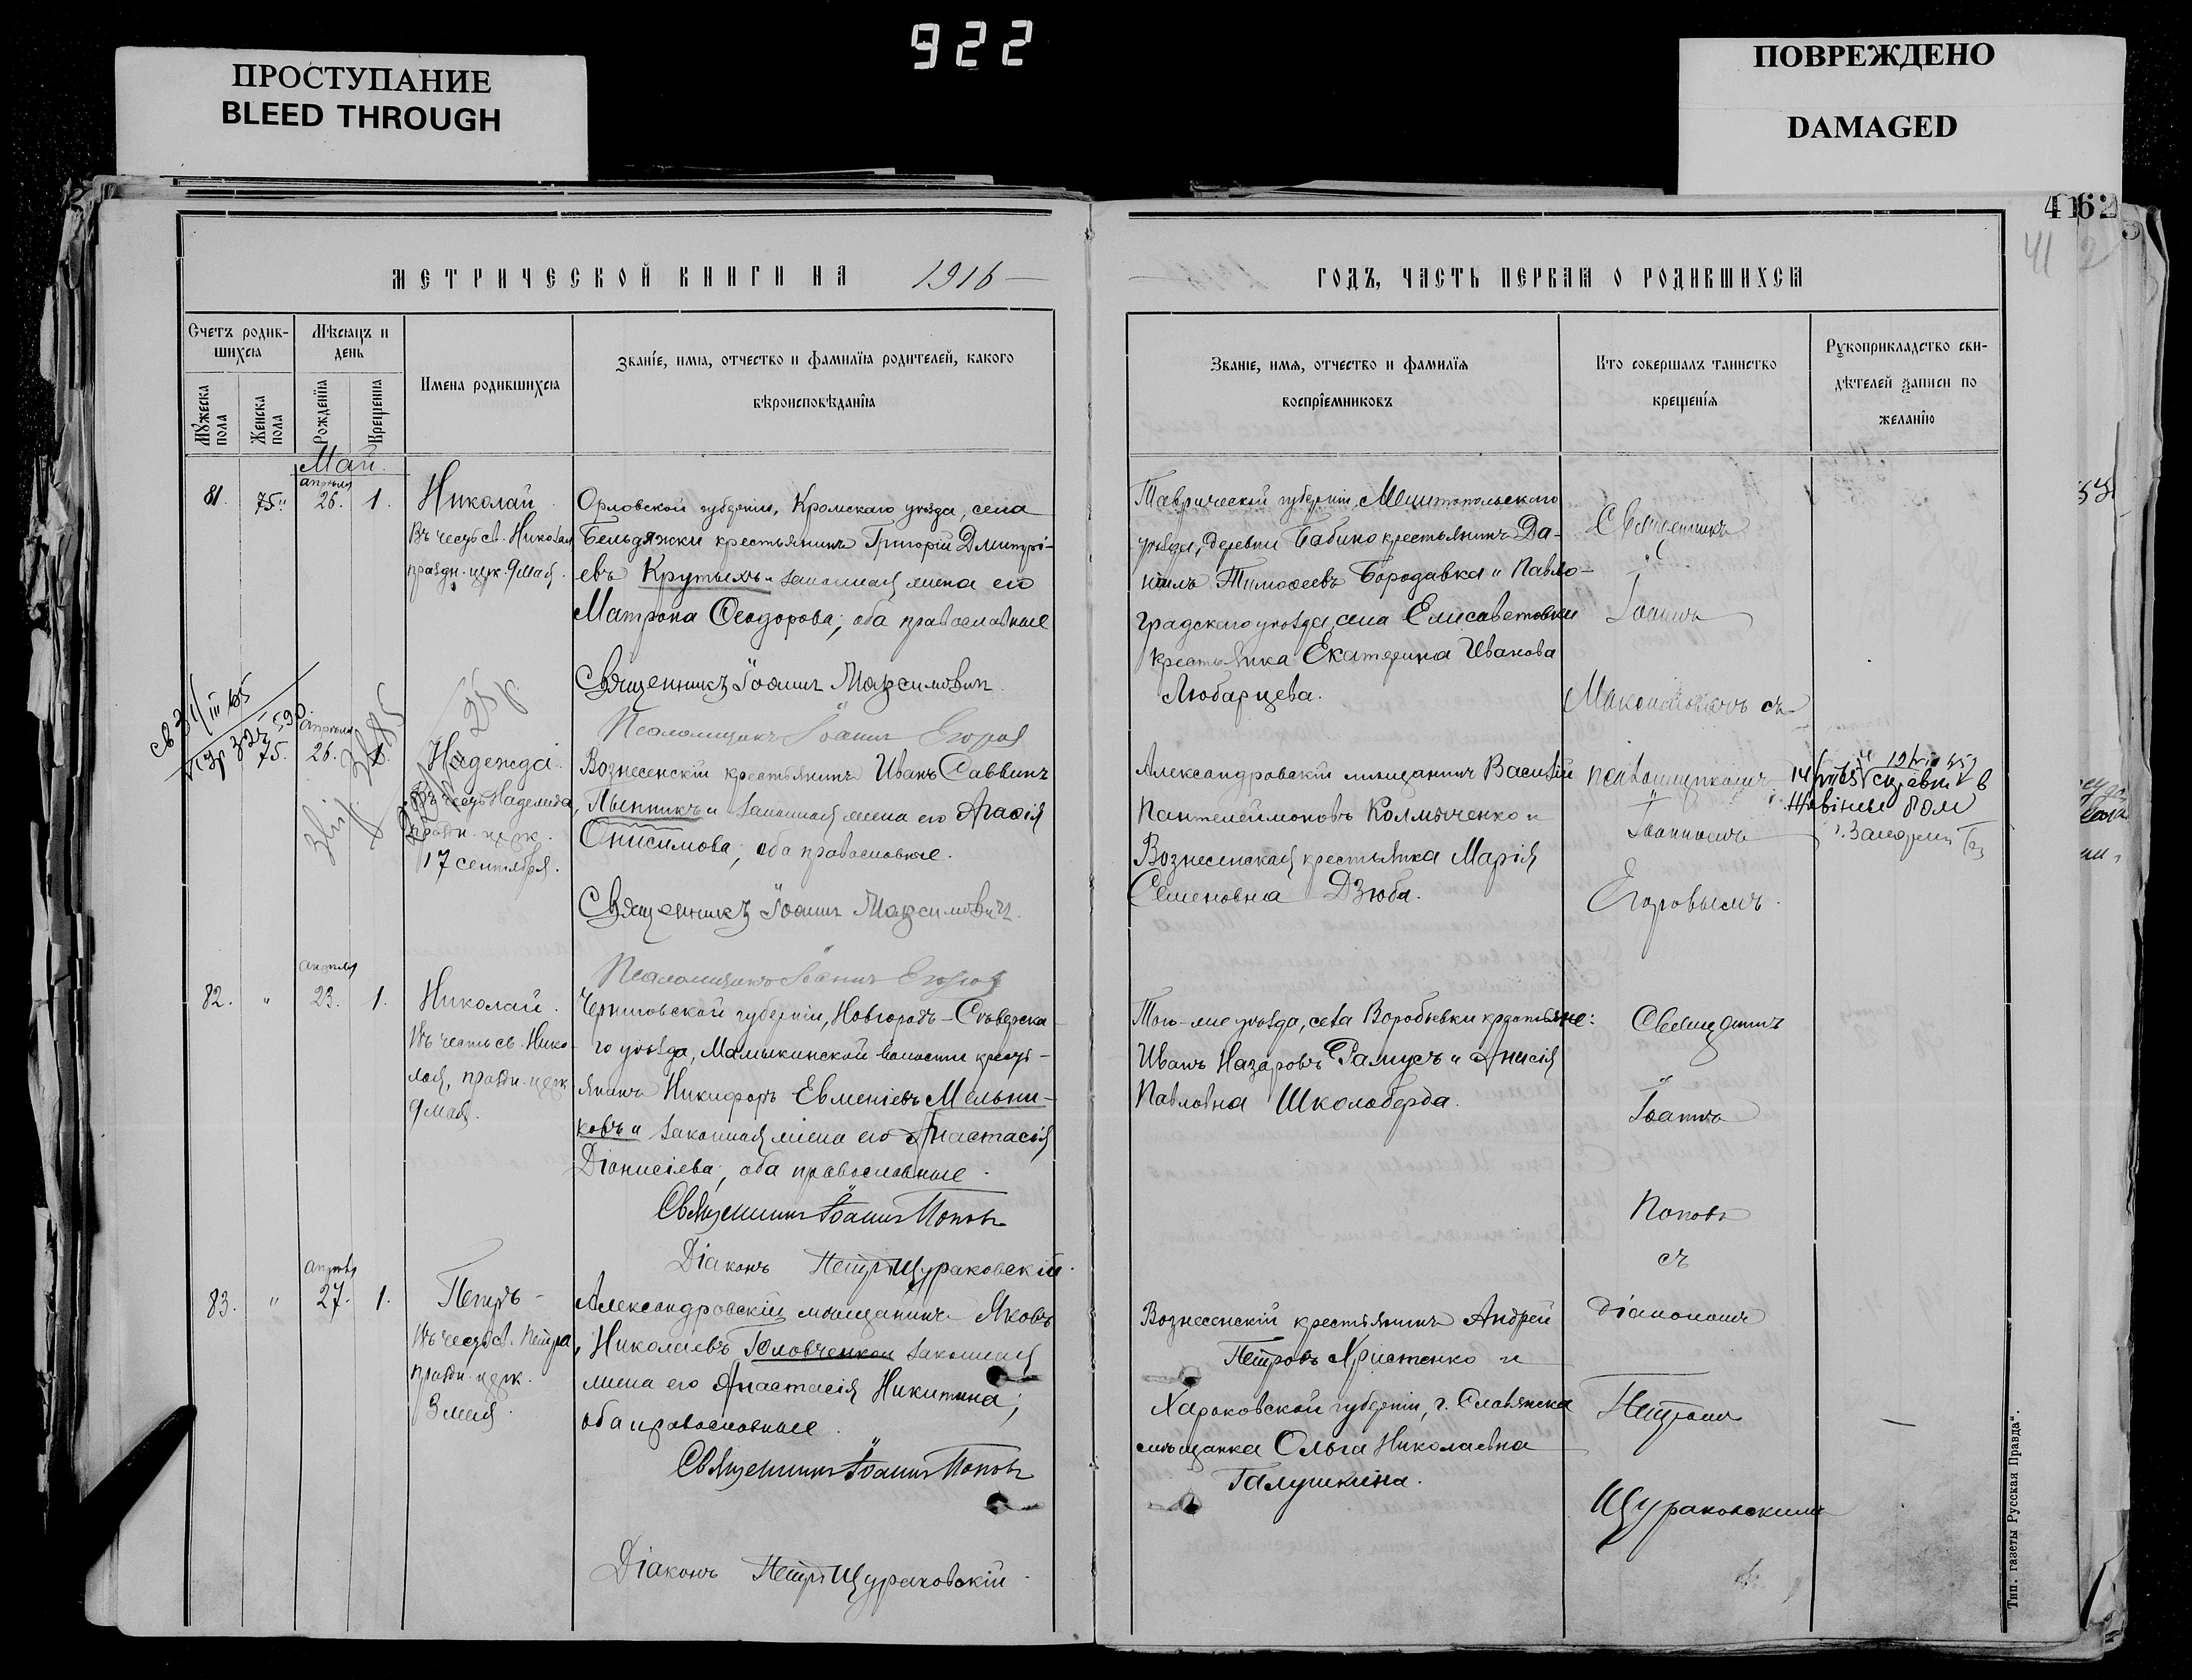 922
ПРОСТУПАНИЕ
BLEED THROUGH
ПОВРЕЖДЕНО
DAMAGED
4162
41 2
МЕТРИЧЕСКОЙ КНИГИ НА 1916
Счетъ родив-
шихся
Мѣсяцъ и
день
Мужеска пола
Женска пола
Рожденія
Крещенія
Имена родившихся
Званіе, имя, отчество и фамилія родителей, какого
вѣроисповѣданія
Май.
апрѣля
81. 75" 26. 1.
Николай
Въ честь св. Николая
праздн. церк. 9 мая.
Орловской губерніи, Кромскаго уѣзда, села
Бельдяжки крестьянинъ Григорій Дмитрі-
евъ Крутыхъ и законная жена его
Матрона Ѳеодорова; оба православные
Священникъ Іоаннъ Максимовичъ.
Псаломщикъ Іоаннъ Егоровъ
апрѣля
75. 26. 1.
Надежда.
Въ честь Надежды,
праздн. церк.
17 сентября.
Вознесенскій крестьянинъ Иванъ Саввинъ
и законная жена его Агаѳія
Онисимова; оба православные.
Священникъ Іоаннъ Максимовичъ.
Псаломщикъ Іоаннъ Егоровъ
апрѣля
82. " 23. 1.
Николай.
Въ честь св. Нико-
лая, праздн. церк.
9 мая.
Черниговской губерніи, Новгородъ-Сѣверска-
го уѣзда, Мамыкинской волости кресть-
янинъ Никифоръ Евменіевъ Мельни-
ковъ и законная жена его Анастасія
Діонисіева; оба православные.
Священникъ Іоаннъ Поповъ
Діаконъ Петръ Щураковскій.
апрѣля
83. " 27. 1.
Петръ
Въ честь св. Петра,
праздн. церк.
3 мая.
Александровскій мѣщанинъ Яковъ
Николаевъ Головченко и законная
жена его Анастасія Никитина;
оба православные.
Священникъ Іоаннъ Поповъ
Діаконъ Петръ Щураковскій.
ГОДЪ, ЧАСТЬ ПЕРВАЯ О РОДИВШИХСЯ
Званіе, имя, отчество и фамилія
воспріемниковъ
Кто совершалъ таинство
крещенія
Рукоприкладство сви-
дѣтелей записи по
желанію
Таврической губерніи, Мелитопольскаго
уѣзда, деревни Бабино крестьянинъ Да-
ніилъ Тимоѳеевъ Бородавка и Павло-
градскаго уѣзда, села Елисаветовки
крестьянка Екатерина Иванова
Любарцева.
Священникъ
Іоаннъ
Максимовичъ съ
Александровскій мѣщанинъ Василій
Пантелеймоновъ Колмыченко и
Вознесенская крестьянка Марія
Семеновна Дзюба.
псаломщикомъ
Іоанномъ
Егоровымъ.
Того-же уѣзда, села Воробьевки крестьяне:
Иванъ Назаровъ Рамусъ и Анисія
Павловна Школоберда.
Священникъ
Іоаннъ
Поповъ
съ
Вознесенскій крестьянинъ Андрей
Петровъ Христенко и
Харьковской губерніи, г. Славянска
мѣщанка Ольга Николаевна
Галушкина.
діакономъ
Петромъ
Щураковскимъ
Тип. газеты „Русская Правда“.